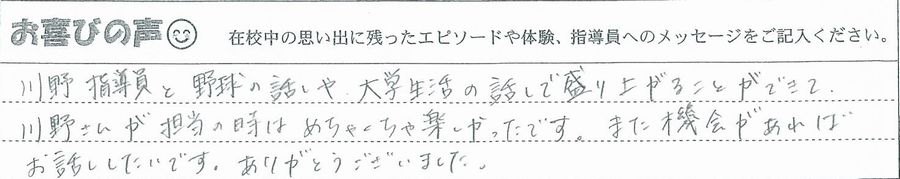 お喜びの声 在校中の思い出に残ったエピソードや体験、指導員へのメッセージをご記入ください。
川野指導員と野球の話しや、大学生活の話しで盛り上がることができて、
川野さんが担当の時はめちゃくちゃ楽しかったです。また機会があれば
お話ししたいです。ありがとうございました。